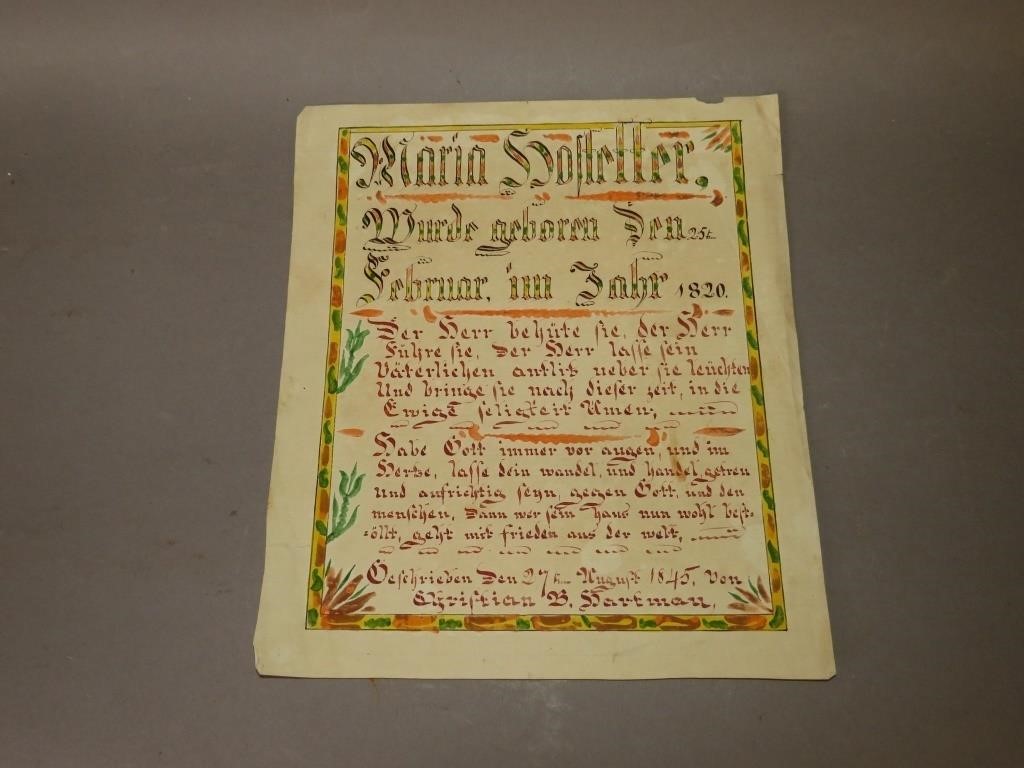 Maria Hostetter.
Wurde geboren Den 25t
Februar, im Jahr 1820.
Der Herr behüte sie, der Herr
Führe sie, Der Herr lasse sein
Väterlichen antlitz ueber sie leüchten
Und bringe sie nach dieser zeit, in die
Ewige seligkeit Amen,
Habe Gott immer vor augen, und im
Hertze, lasse dein wandel, und handel, getreu
Und aufrichtig seyn, gegen Gott, und den
menschen, Dann wer sein haus nun wohl best-
-öllt, geht mit frieden aus der welt,
Geschrieben Den 27t August 1845, von
Christian B. Hartman,